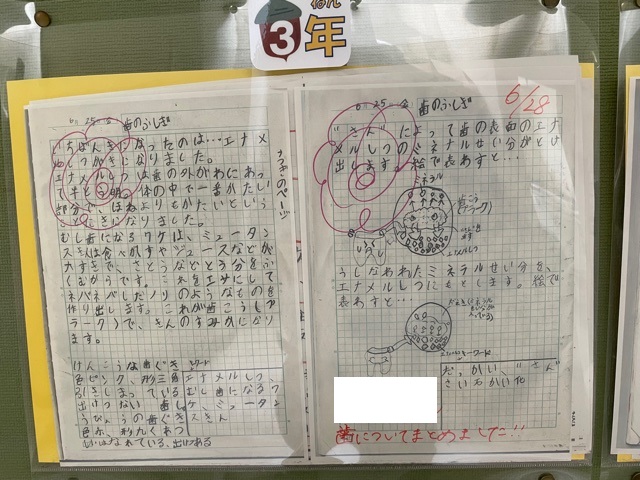 ねん
3年
6/25 金 歯のふしぎ
いちばん気になったのは…エナメ
ルしつが気になりました。
エナメルしつは歯の外がわにあっ
てすとう明。体の中で一番かたい
部分で、ほねよりもかたいという
ことも気になりました。
むし歯になるワケは、ミュータン
スきんは食べかすやジュースなどが
大すきで、さとうなどとう分をふ
くむからです。これをエサにして
ネバネバしたノリのようなものを
作り出します。これが歯こう(プ
ラーク)で、きんのすみかになり
ます。
つぎのページ
けんこうな歯ぐき
キーワード
色ピンク、形三角
エナメルしつ
引きしまっている
むし歯になるワ
出けつない 歯し
ケ ミュータン
うびょうの歯ぐき
スきん
色赤、形丸くあつ
いはなれている、出けつある
6/25 金 歯のふしぎ
6/28
"さん"によって歯の表面のエナ
メルしつのミネラルせい分がとけ
出します。絵で表あすと…
ミネラル
歯こう
(プラーク)
エナメルしつ
うしなわれたミネラルせい分を、
エナメルしつにもどします。絵で
表わすと…
キーワード
だっかい、"さん"
さい石かい化
歯についてまとめました!!